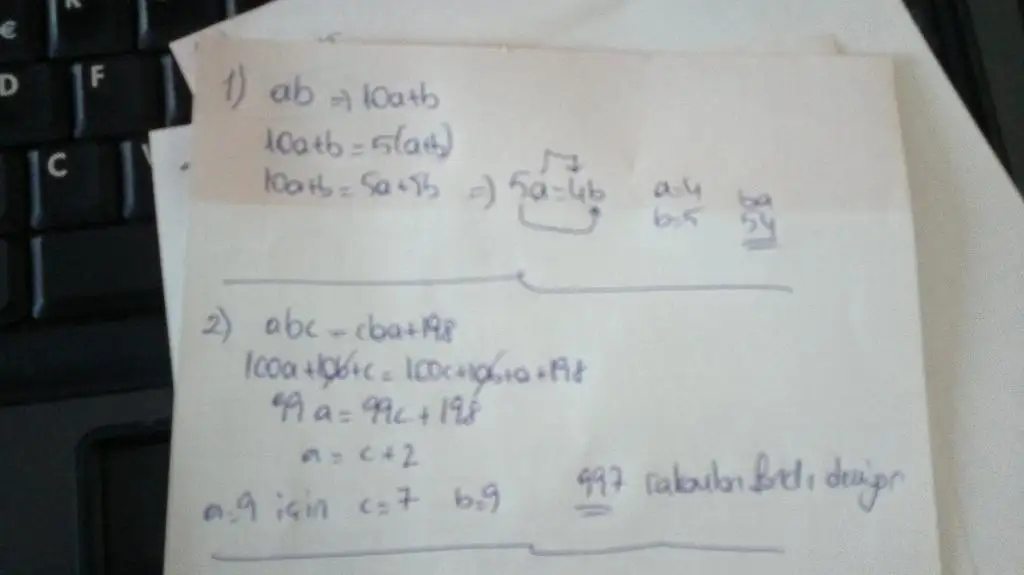 €
D
F
C
1) ab => 10a+b
10a+b = 5(a+b)
10a+b = 5a+5b => 5a=4b a=4 ba
b=5 54
2) abc = cba+198
100a+10b+c = 100c+10b+a+198
99a = 99c + 198
a = c + 2
a=9 için c=7 b=9 997